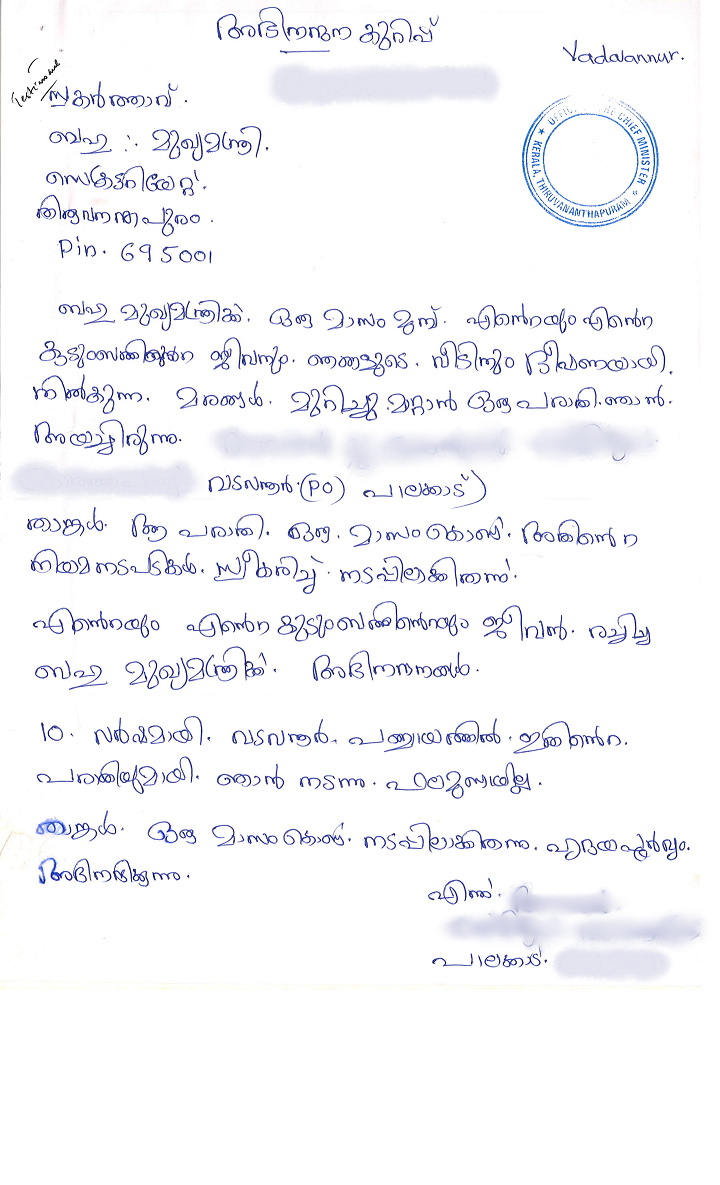 അഭിനന്ദന കുറിപ്പ്
Vadavannur.
Testimonial
സ്വകർത്താവ്.
ബഹു : മുഖ്യമന്ത്രി.
സെക്രട്ടറിയേറ്റ്.
തിരുവനന്തപുരം.
Pin. 695001
OFFICE THE CHIEF MINISTER
KERALA, THIRUVANANTHAPURAM
ബഹു മുഖ്യമന്ത്രിക്ക്. ഒരു മാസം മുമ്പ്. എന്റെയും എന്റെ
കുടുംബത്തിന്റെ ജീവനും. ഞങ്ങളുടെ. വീടിനും ഭീഷണയായി.
നിൽകുന്ന. മരങ്ങൾ. മുറിച്ചു മാറ്റാൻ ഒരു പരാതി. ഞാൻ.
അയച്ചിരുന്നു.
വടവന്നൂർ (PO) പാലക്കാട്)
താങ്കൾ. ആ പരാതി. ഒരു. മാസം കൊണ്ട്. അതിന്റെ
നിയമനടപടികൾ. സ്വീകരിച്ച്. നടപ്പിലാക്കിതന്ന്.
എന്റെയും എന്റെ കുടുംബത്തിന്റെയും ജീവൻ. രച്ചിച്ച
ബഹു മുഖ്യമന്ത്രിക്ക്. അഭിനന്ദനങ്ങൾ.
10. വർഷമായി. വടവന്നൂർ. പഞ്ചായത്തിൽ. ഇതിന്റെ.
പരാതിയുമായി. ഞാൻ നടന്നു. ഫലമുണ്ടായില്ല.
താങ്കൾ. ഒരു മാസം കൊണ്ട്. നടപ്പിലാക്കിതന്നു. ഹൃദയപൂർവ്വം.
അഭിനന്ദിക്കുന്നു.
എന്ന്.
പാലക്കാട്.